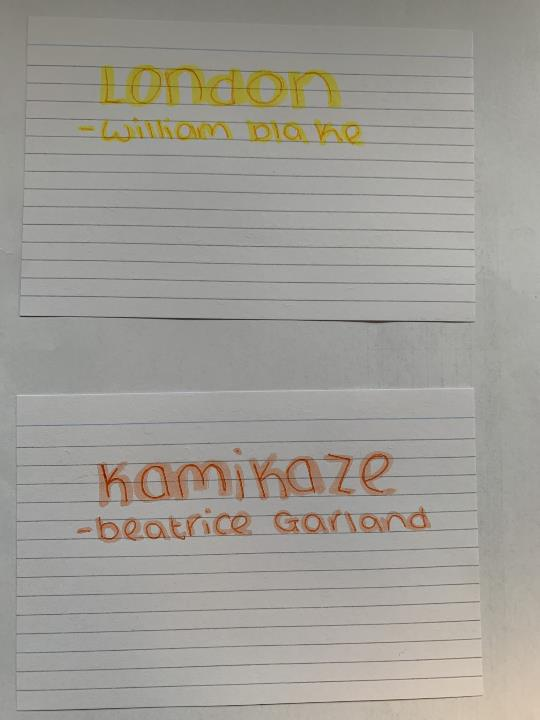 London
-William blake
Kamikaze
-beatrice Garland